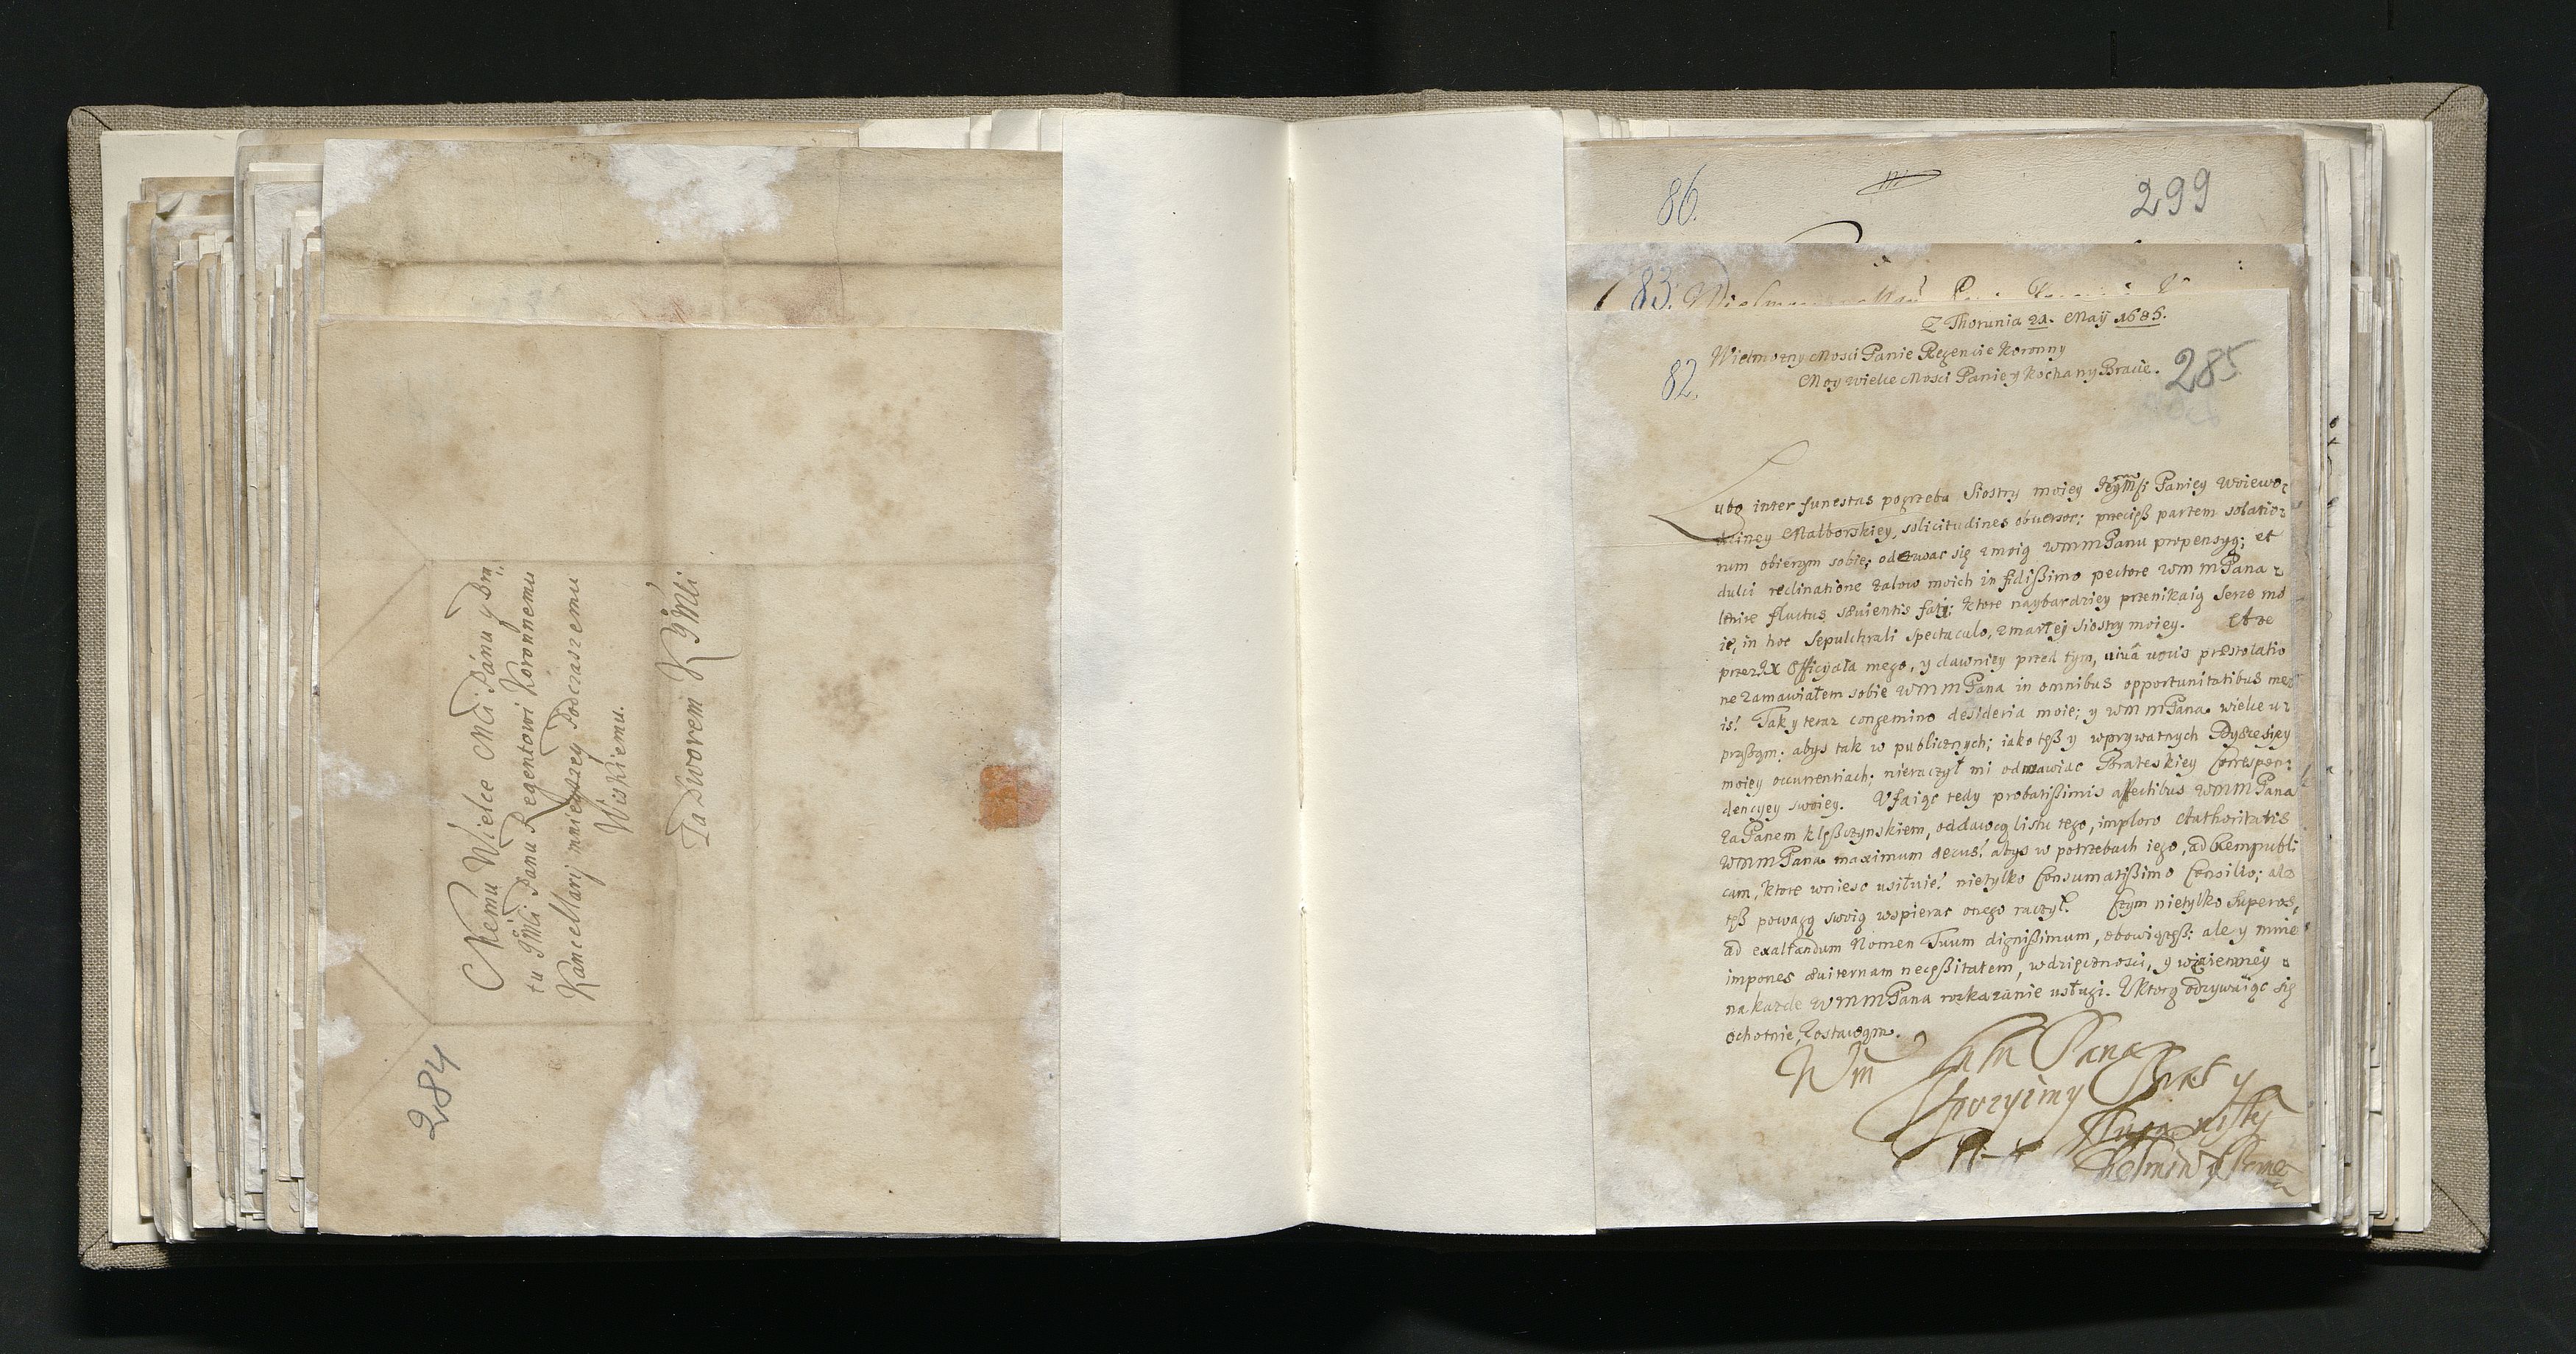 Memu Wielce Mći Pánu y Bra=
tu JMći Panu Regentowi Koronnemu
Kancellarij mnieyszey Podczaszemu
Wiskiemu.
Za Dworem K JMći
284
86.
299
83.
Z Thorunia 21. Maij 1685.
Wielmozny Mosci Panie Regencie Koronny
82.
Moy wielce Mosci Panie y Kochany Bracie.
285
Lubo inter funestas pogrzebu Siostry moiey Jeymśi Paniey Woiewo=
dziney Malborskiey, solicitudines obversor; przecięß partem solatio=
rum obieram sobie; odezwac się z moią WMMPanu propensyą; et
dulci reclinatione zalow moich in fidißimo pectore WM MPana
lenire fluctus sæuientis fati; ktore naybardziey przenikaią Serce mo
ie, in hoc Sepulchrali Spectaculo, zmarłey Siostry moiey. A ze
przez X Officyała mego, y dawniey przed tym, viuâ vocis præstolatio
ne zamawiałem sobie WMMPana in omnibus opportunitatibus me=
is! Tak y teraz congemino desideria moie; y WM MPana wielce u=
praßzam; abys tak w publicznych; iako tęß y wprywatnych Dyæcesiey
moiey occurrentiach; nieraczył mi odmawiac Braterskiey Correspon=
dencyey swoiey. Vfaiąc tedy probatißimis affectibus WMMPana
za Panem Klęßczynskiem, oddawcą listu tego, imploro Authoritatis
WMMPana maximum decus! abys w potrzebach iego, ad Rempubli
cam, ktore wniesc usiłuie! nietylko Consumatißimo Consilio; ale
tęß powagą swoią wspierac onego raczył. Czym nietylko Superos,
ad exaltandum Nomen Tuum dignißimum, obowiązeß: ale y mnie
impones æuiternam neceßitatem, wdzięcznosci, y wzaiemney
na kazde WMMPana rozkazanie usługi. Vktorą odzywaiąc się
ochotnie, zostawam.
Wm M Pana
zyczliwy Brat y
Sługa